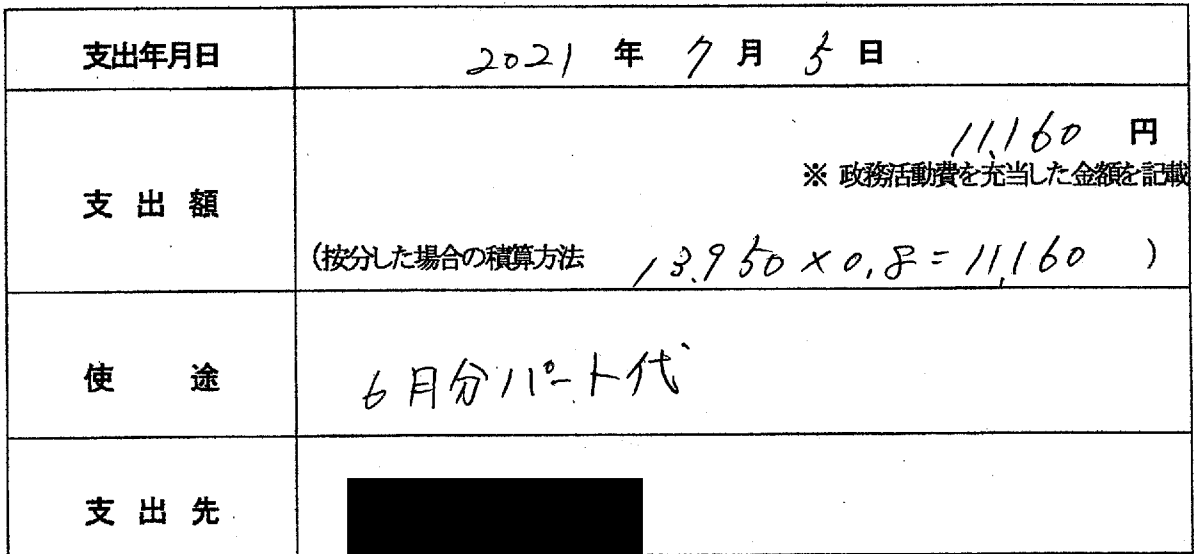 支出年月日 2021 年 7 月 5 日
11,160 円
※ 政務活動費を充当した金額を記載
支出額
(按分した場合の積算方法 13,950×0.8=11,160 )
使途 6月分パート代
支出先